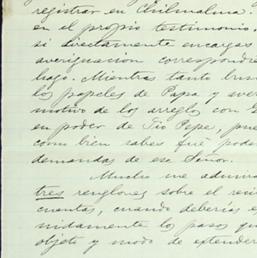 registrar en Chilmalma.
en el propio testimonio,
si directamente encargas
averiguacion correspondie
hago. Mientras tanto bus
los papeles de Papa y aver
motivo de los arreglos con
en poder de Tio Pepe, pues
como bien sabes fué pode
demandas de ese Señor.
Mucho me admira
tres renglones sobre el reci
cuentas, cuando deberías e
nidamente los pasos qu
objeto y modo de extender